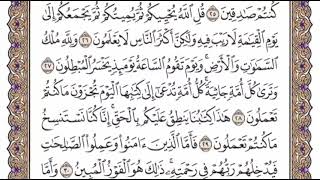 كُنتُمْ صَٰدِقِينَ ٢٥ قُلِ ٱللَّهُ يُحْيِيكُمْ ثُمَّ يُمِيتُكُمْ ثُمَّ يَجْمَعُكُمْ إِلَىٰ
يَوْمِ ٱلْقِيَٰمَةِ لَا رَيْبَ فِيهِ وَلَٰكِنَّ أَكْثَرَ ٱلنَّاسِ لَا يَعْلَمُونَ ٢٦ وَلِلَّهِ مُلْكُ
ٱلسَّمَٰوَٰتِ وَٱلْأَرْضِ ۚ وَيَوْمَ تَقُومُ ٱلسَّاعَةُ يَوْمَئِذٍ يَخْسَرُ ٱلْمُبْطِلُونَ ٢٧
وَتَرَىٰ كُلَّ أُمَّةٍ جَاثِيَةً ۚ كُلُّ أُمَّةٍ تُدْعَىٰٓ إِلَىٰ كِتَٰبِهَا ٱلْيَوْمَ تُجْزَوْنَ مَا كُنتُمْ
تَعْمَلُونَ ٢٨ هَٰذَا كِتَٰبُنَا يَنطِقُ عَلَيْكُم بِٱلْحَقِّ ۚ إِنَّا كُنَّا نَسْتَنسِخُ
مَا كُنتُمْ تَعْمَلُونَ ٢٩ فَأَمَّا ٱلَّذِينَ ءَامَنُوا۟ وَعَمِلُوا۟ ٱلصَّٰلِحَٰتِ
فَيُدْخِلُهُمْ رَبُّهُمْ فِى رَحْمَتِهِۦ ۚ ذَٰلِكَ هُوَ ٱلْفَوْزُ ٱلْمُبِينُ ٣٠ وَأَمَّا